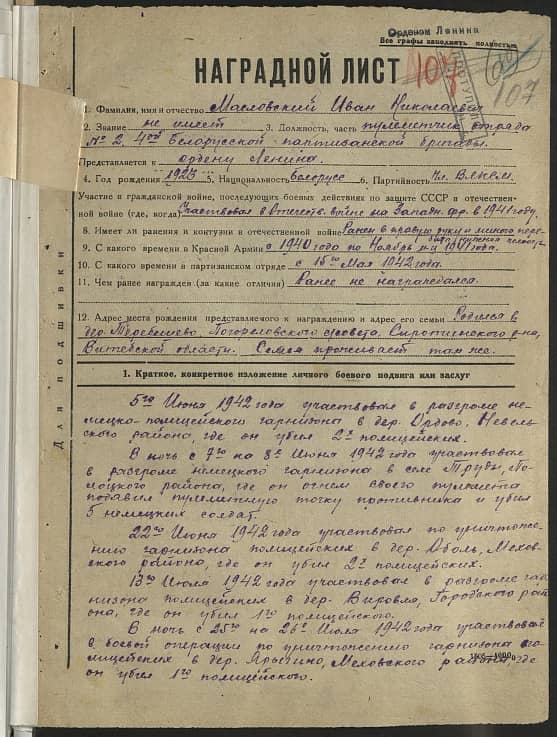 Орденом Ленина
Все графы заполнять полностью
НАГРАДНОЙ ЛИСТ
107
107
1. Фамилия, имя и отчество Масловский Иван Николаевич
2. Звание не имеет 3. Должность, часть пулеметчик отряда
№ 2, 4ой Белорусской партизанской бригады.
Представляется к ордену Ленина.
4. Год рождения 1923 5. Национальность Белорусс 6. Партийность чл. ВЛКСМ.
Участие в гражданской войне, последующих боевых действиях по защите СССР и отечествен-
ной войне (где, когда) Участвовал в Отечеств. войне на Западн. фр. в 1941 году.
8. Имеет ли ранения и контузии в отечественной войне Ранен в правую руку и
9. С какого времени в Красной Армии с 1940 года по Ноябрь м-ц 1941 года.
10. С какого времени в партизанском отряде с 15го Мая 1942 года.
11. Чем ранее награжден (за какие отличия) Ранее не награждался.
12. Адрес места рождения представляемого к награждению и адрес его семьи Родился в
дер. Погореловского с/совета, Сиротинского р-на,
Витебской области. Семья проживает там же.
Для подшивки
1. Краткое, конкретное изложение личного боевого подвига или заслуг
5го Июня 1942 года участвовал в разгроме не-
мецко-полицейского гарнизона в дер. Ордово, Невель-
ского района, где он убил 2х полицейских.
В ночь с 7го на 8е Июня 1942 года участвовал
в разгроме немецкого гарнизона в селе Труды, По-
лоцкого района, где он огнем своего пулемета
подавил пулеметную точку противника и убил
5 немецких солдат.
22го Июня 1942 года участвовал по уничтоже-
нию гарнизона полицейских в дер. Оболь, Мехов-
ского района, где он убил 2х полицейских.
13го Июля 1942 года участвовал в разгроме гар-
низона полицейских в дер. Вировля, Городокского рай-
она, где он убил 1го полицейского.
В ночь с 25го на 26е Июля 1942 года участвовал
в боевой операции по уничтожению гарнизона по-
лицейских в дер. Меховского района, где
он убил 1го полицейского.